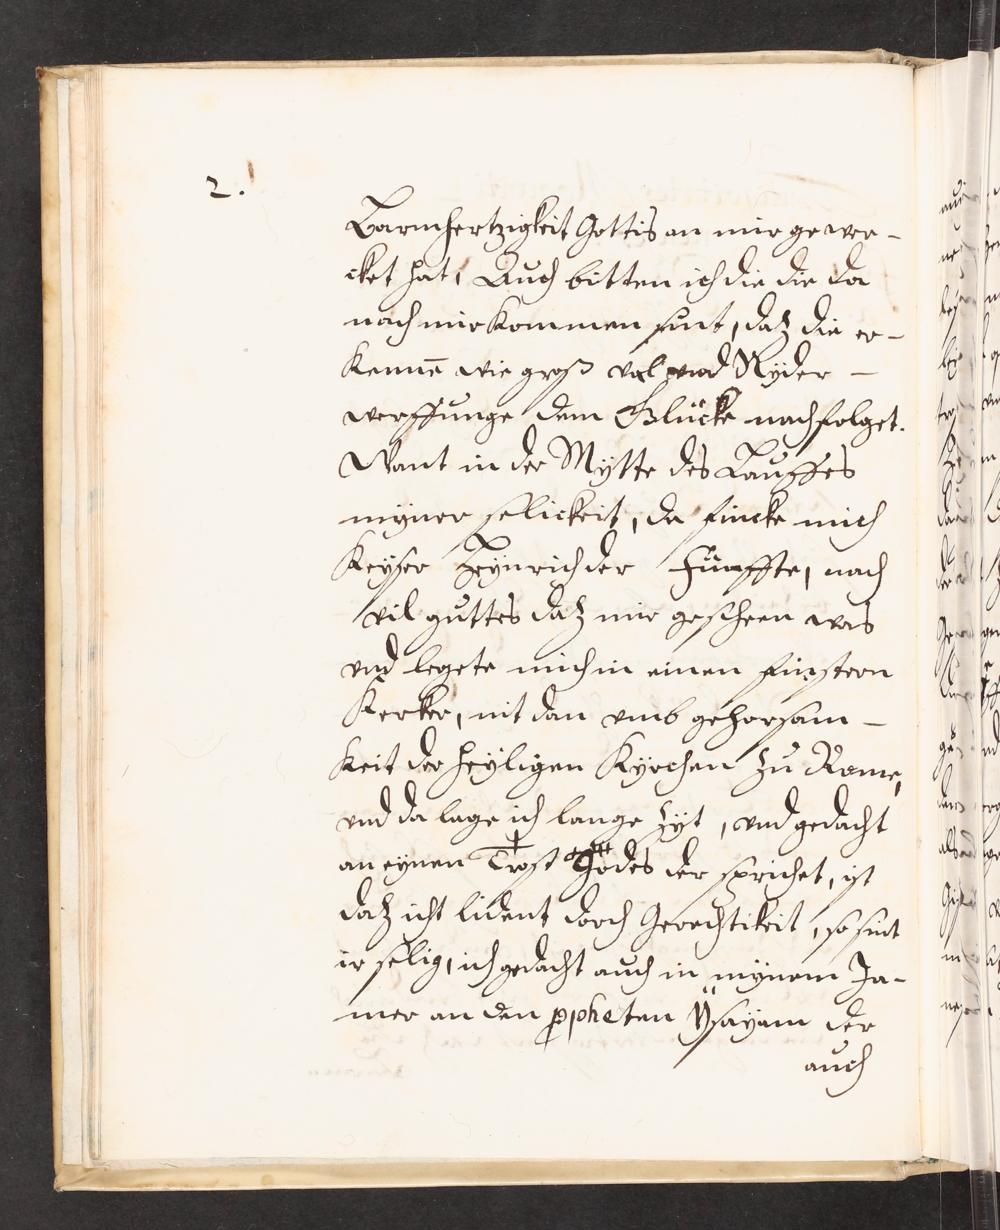 2.
Barmhertzigkeit Gottis an mir gewer-
cket hat, Auch bitten ich die die da
nach mir kommen sint, daß die er-
kenne̅ wie groß val vnd Nÿder-
werffunge dem Glücke nachfolget.
Want in der Mÿtte des Lauffes
mÿner selickeit, da fincke mich
Keÿser Heÿnrich der Fünffte, nach
vil guttes daß mir gescheen was
vnd legete mich in einen finstern
Kerker, nit dan vmb gehorsam-
keit der heÿligen Kÿrchen zu Rome,
vnd da lage ich lange zÿt, vnd gedacht
an eÿnen Trost Godes der sprichet, ist
daß icht lident dorch Gerechtikeit, so sint
ir selig, ich gedacht auch in mÿnem Ja-
mer an den ppheten Ÿsayam der
auch